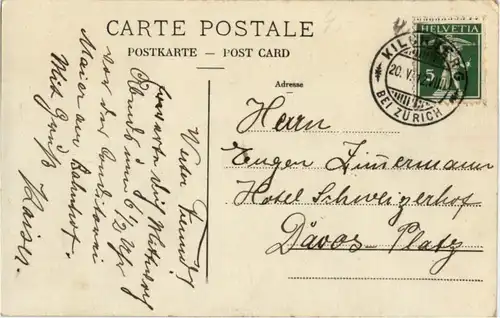 CARTE POSTALE
POSTKARTE - POST CARD
HELVETIA
5
KILCHBERG
20. V
BEI ZÜRICH
Adresse
Herrn
Eugen Zimmermann
Hotel Schweizerhof
Davos-Platz
Werter Freund!
Erwarte dich Mittwoch
Abends um 6½ Uhr
vor der Conditorei
Maier am Bahnhof.
Mit Gruß
Kaiser.